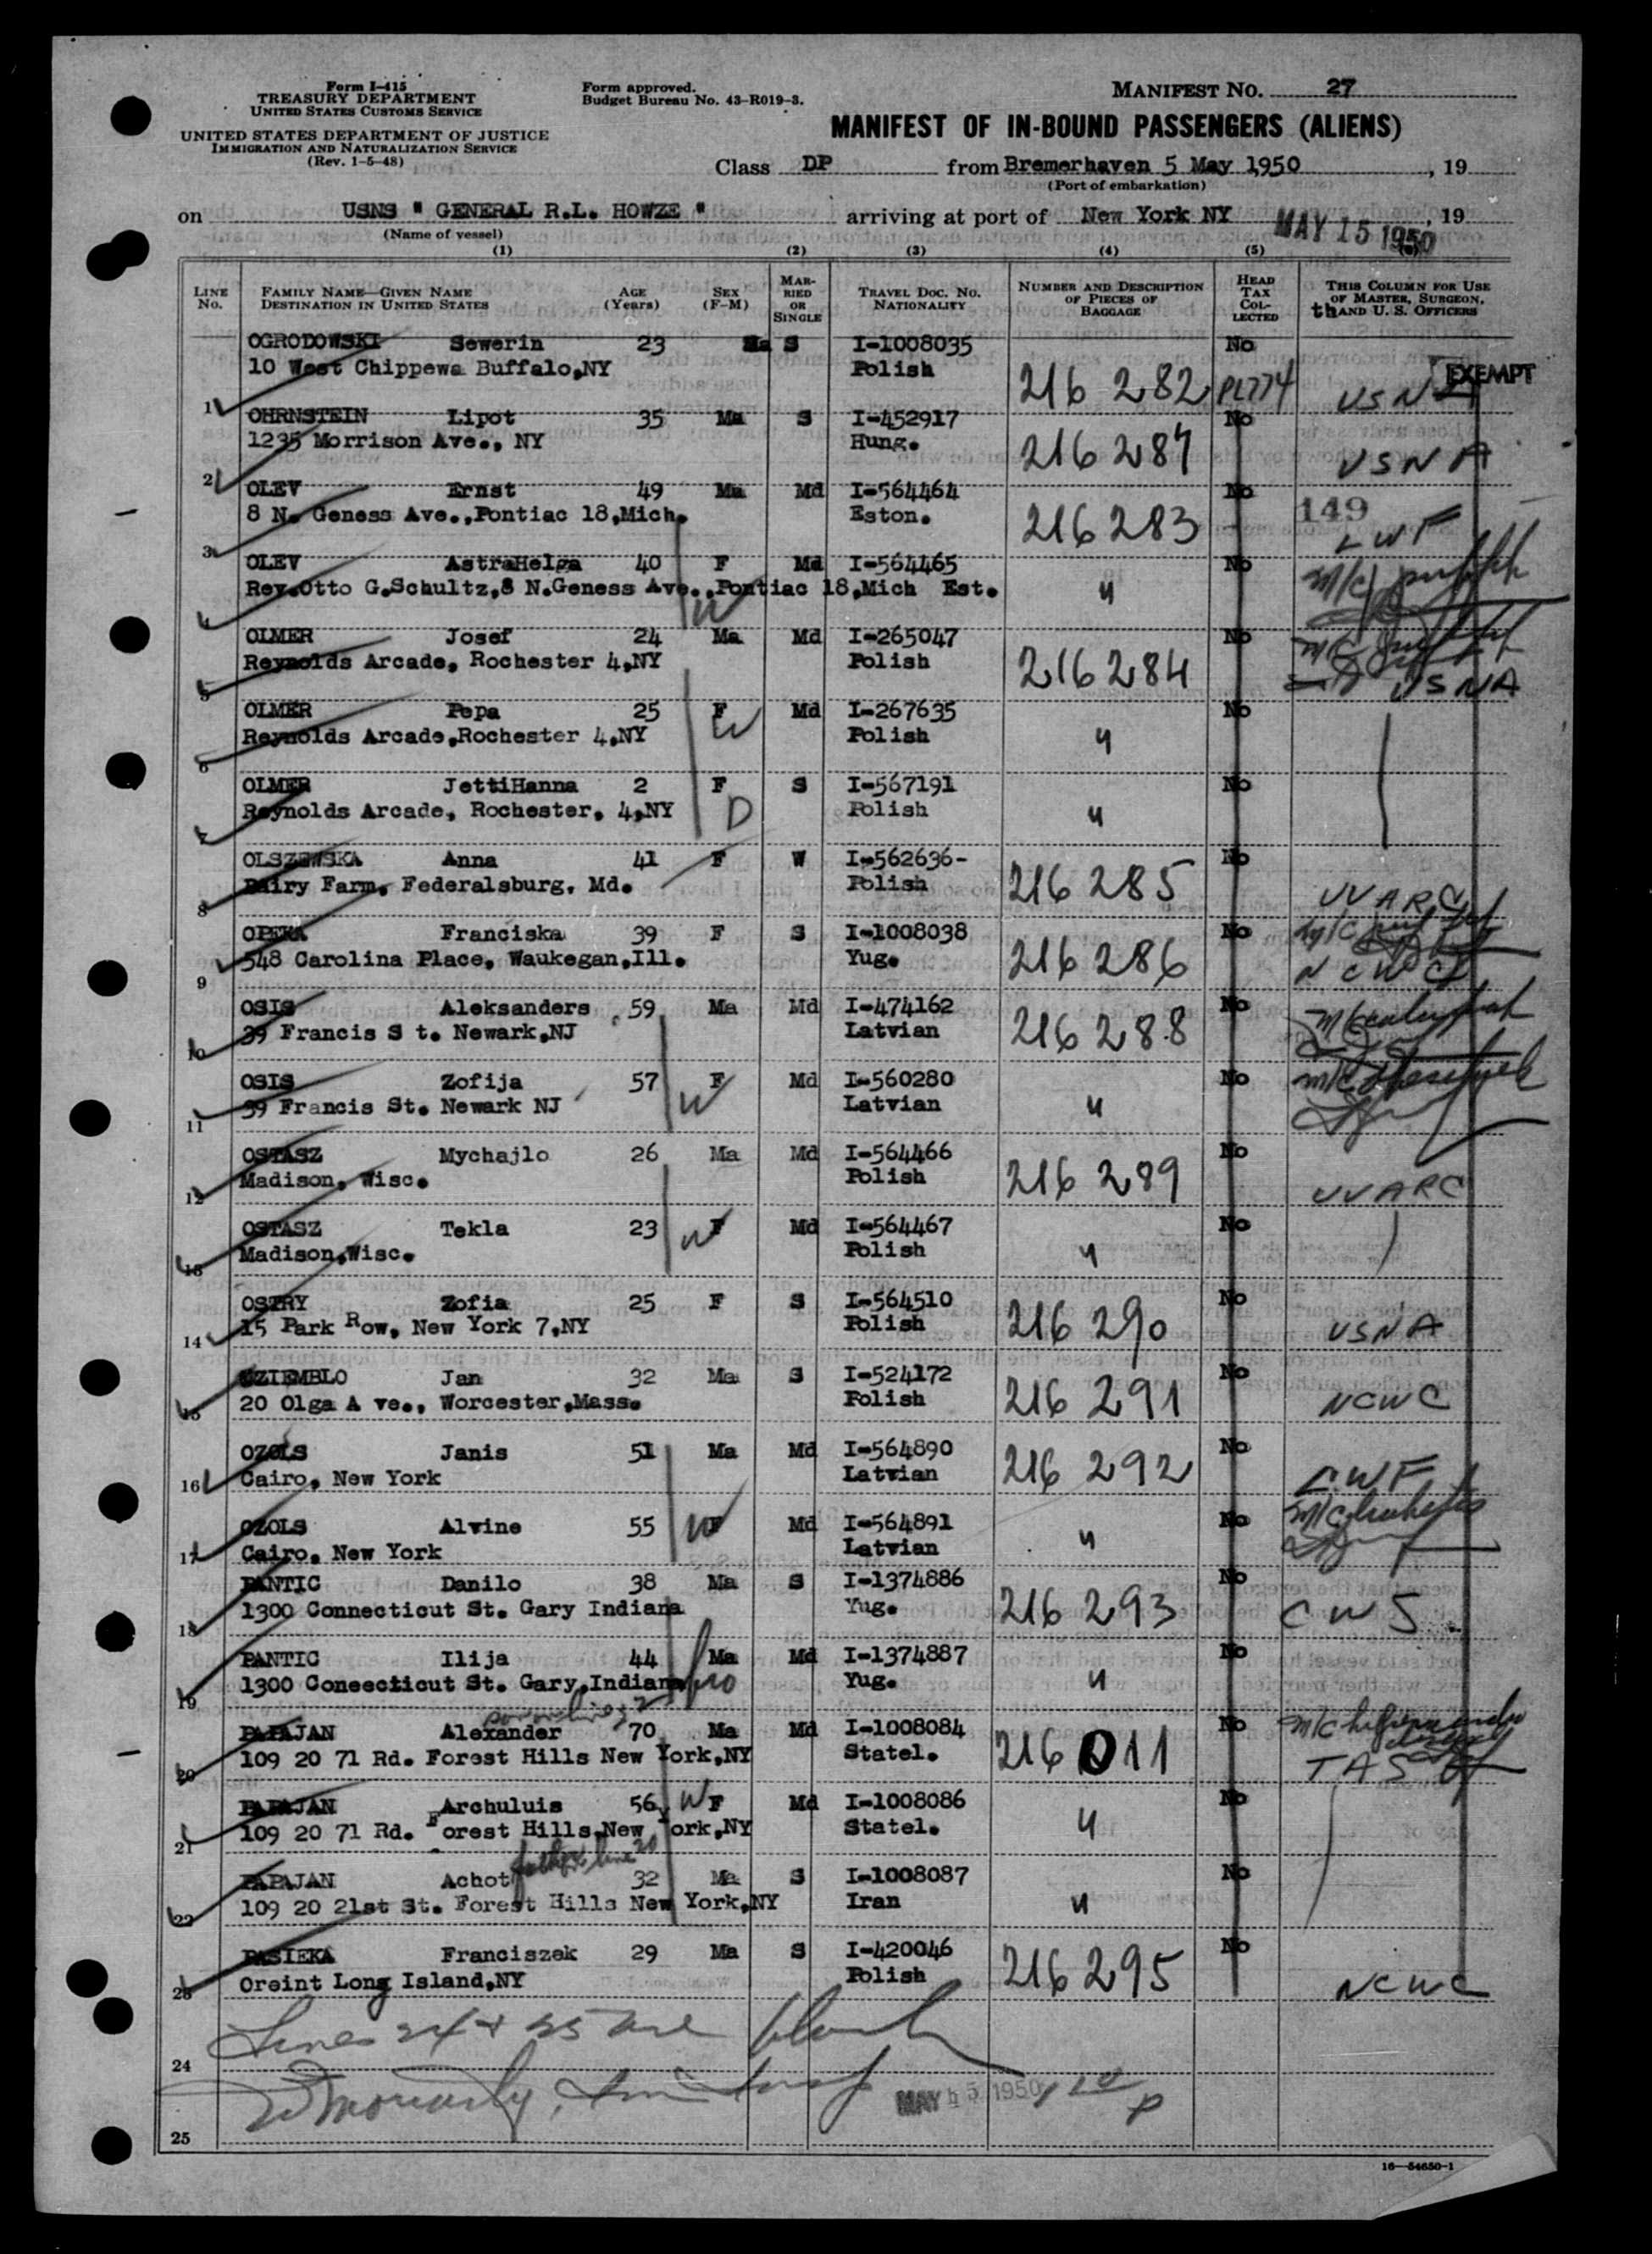 Form I-415
TREASURY DEPARTMENT
UNITED STATES CUSTOMS SERVICE
UNITED STATES DEPARTMENT OF JUSTICE
IMMIGRATION AND NATURALIZATION SERVICE
(Rev. 1-5-48)
Form approved.
Budget Bureau No. 43-R019-3.
MANIFEST NO. 27
MANIFEST OF IN-BOUND PASSENGERS (ALIENS)
Class DP from Bremerhaven 5 May 1950, 19
(Port of embarkation)
on USNS " GENERAL R.L. HOWZE " arriving at port of New York NY MAY 15 1950, 19
(Name of vessel)
(1) (2) (3) (4) (5)
LINE No. FAMILY NAME—GIVEN NAME DESTINATION IN UNITED STATES AGE (Years) SEX (F-M) MARRIED OR SINGLE TRAVEL DOC. NO. NATIONALITY NUMBER AND DESCRIPTION OF PIECES OF BAGGAGE HEAD TAX COLLECTED THIS COLUMN FOR USE OF MASTER, SURGEON, AND U. S. OFFICERS
OGRODOWSKI Sewerin 23 Ma S I-1008035 No
1 10 West Chippewa Buffalo,NY Polish 216 282 PL774 USNA EXEMPT
OHRNSTEIN Lipot 35 Ma S I-452917 No
2 1235 Morrison Ave., NY Hung. 216 287 USNA
OLEV Ernst 49 Ma Md I-564464 No 149
3 8 N. Geness Ave.,Pontiac 18,Mich. Eston. 216283 LWF
OLEV AstraHelga 40 F Md I-564465 No M/C
4 Rev.Otto G.Schultz,8 N.Geness Ave.,Pontiac 18,Mich Est. " W
OLMER Josef 24 Ma Md I-265047 No M/C
5 Reynolds Arcade, Rochester 4,NY Polish 216284 USNA
OLMER Pepa 25 F Md I-267635 No
6 Reynolds Arcade,Rochester 4,NY W Polish "
OLMER JettiHanna 2 F S I-567191 No
7 Reynolds Arcade, Rochester, 4,NY D Polish "
OLSZEWSKA Anna 41 F W I-562636- No
8 Dairy Farm, Federalsburg, Md. Polish 216 285 UUARC
OPEKA Franciska 39 F S I-1008038 No
9 548 Carolina Place, Waukegan,Ill. Yug. 216 286 NCWC
OSIS Aleksanders 59 Ma Md I-474162 No
10 39 Francis S t. Newark,NJ Latvian 216 288
OSIS Zofija 57 F Md I-560280 No M/C
11 39 Francis St. Newark NJ W Latvian "
OSTASZ Mychajlo 26 Ma Md I-564466 No
12 Madison, Wisc. Polish 216 289 UUARC
OSTASZ Tekla 23 W F Md I-564467 No
13 Madison,Wisc. Polish "
OSTRY Zofia 25 F S I-564510 No
14 15 Park Row, New York 7,NY Polish 216 290 USNA
OZIEMBLO Jan 32 Ma S I-524172 No
15 20 Olga A ve., Worcester,Mass. Polish 216 291 NCWC
OZOLS Janis 51 Ma Md I-564890 No
16 Cairo, New York Latvian 216 292 LWF
OZOLS Alvine 55 W F Md I-564891 No M/C
17 Cairo. New York Latvian "
PANTIC Danilo 38 Ma S I-1374886 No
18 1300 Connecticut St. Gary Indiana Yug. 216 293 CWS
PANTIC Ilija 44 Ma Md I-1374887 No
19 1300 Coneecticut St. Gary,Indiana bro Yug. "
PAPAJAN Alexander 70 Ma Md I-1008084 No M/C
20 109 20 71 Rd. Forest Hills New York,NY Statel. 216 011 TAS
PAPAJAN Archuluis 56 W F Md I-1008086 No
21 109 20 71 Rd. Forest Hills,New York,NY Statel. "
father line 20
PAPAJAN Achot 32 Ma S I-1008087 No
22 109 20 21st St. Forest Hills New York,NY Iran "
PASIEKA Franciszek 29 Ma S I-420046 No
23 Oreint Long Island,NY Polish 216 295 NCWC
Lines 24 + 25 are blank
24
MAY 15 1950
25
16—54650-1